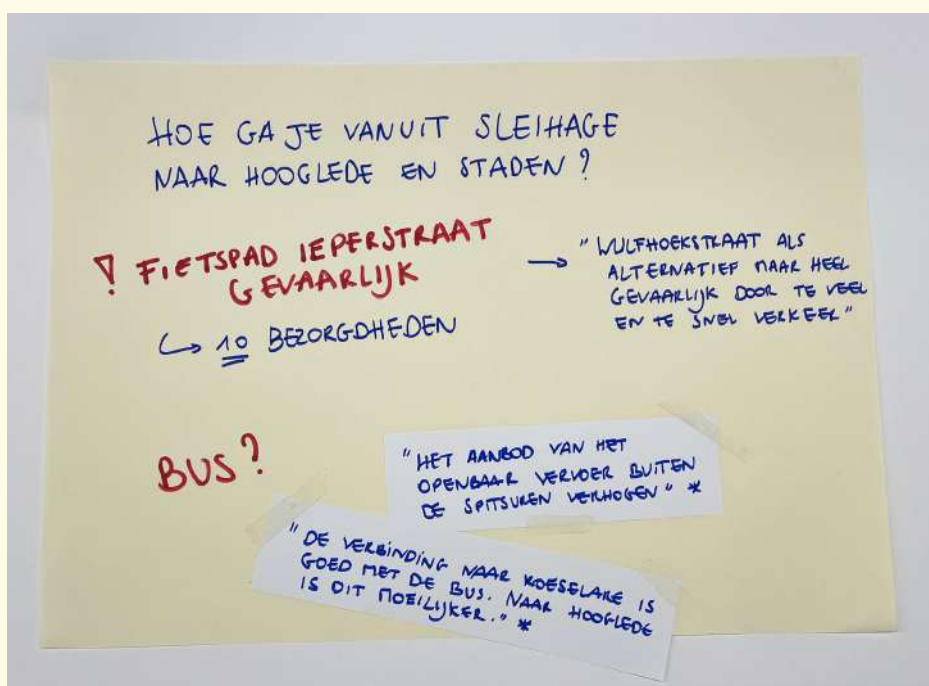 HOE GA JE VANUIT SLEIHAGE
NAAR HOOGLEDE EN STADEN?
! FIETSPAD IEPERSTRAAT
GEVAARLIJK
↳ 10 BEZORGDHEDEN
→ "WULFHOEKSTRAAT ALS
ALTERNATIEF MAAR HEEL
GEVAARLIJK DOOR TE VEEL
EN TE SNEL VERKEER"
BUS?
"HET AANBOD VAN HET
OPENBAAR VERVOER BUITEN
DE SPITSUREN VERHOGEN" *
"DE VERBINDING NAAR ROESELARE IS
GOED MET DE BUS. NAAR HOOGLEDE
IS DIT MOEILIJKER." *